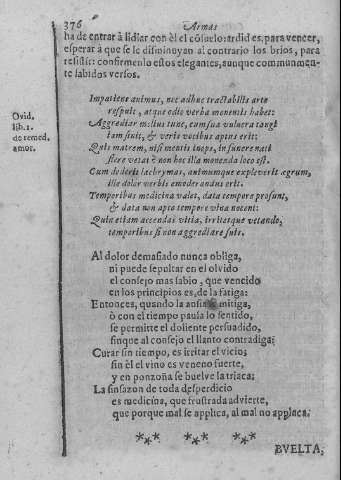 376 Armas
ha de entrar à lidiar con èl el cõsuelo: ardid es, para vencer,
esperar à que se le disminuyan al contrario los brios, para
resistir: confirmenlo estos elegantes, aunque communmen-
te sabidos versos.
Ovid.
lib. 1.
de remed.
amor.
Impatiens animus, nec adhuc tractabilis arte
respuit, atque odio verba monentis habet:
Aggrediar melius tunc, cum sua vulnera tangi
iam sinit, & veris vocibus aptus erit:
Quis matrem, nisi mentis inops, in funere nati
flere vetat? non hoc illa monenda loco est.
Cum dederit lachrymas, animumque expleverit ægrum,
ille dolor verbis emoderandus erit.
Temporibus medicina valet, data tempore prosunt,
& data non apto tempore vina nocent:
Quin etiam accendas vitia, irritesque vetando,
temporibus si non aggrediare suis.
Al dolor demasiado nunca obliga,
ni puede sepultar en el olvido
el consejo mas sabio, que vencido
en los principios es, de la fatiga:
Entonces, quando la ansia mitiga,
ò con el tiempo pausa lo sentido,
se permitte el doliente persuadido,
sin que al consejo el llanto contradiga;
Curar sin tiempo, es irritar el vicio;
sin èl el vino es veneno fuerte,
y en ponzoña se buelve la triaca;
La sinsazon de toda desperdicio
es medicina, que frustrada advierte,
que porque mal se applica, al mal no applaca.
*** *** ***
BVELTA,